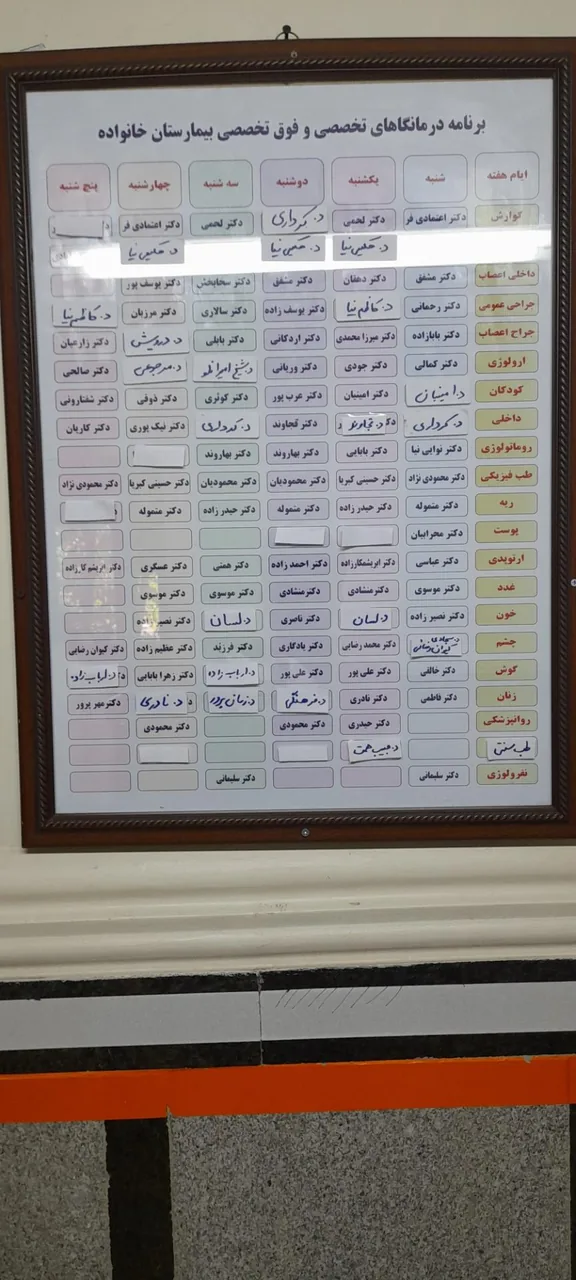 برنامه درمانگاهای تخصصی و فوق تخصصی بیمارستان خانواده
ایام هفته شنبه یکشنبه دوشنبه سه شنبه چهارشنبه پنج شنبه
گوارش دکتر اعتمادی فر دکتر لحمی د. کرداری دکتر لحمی دکتر اعتمادی فر
د. حکیمی نیا د. حکیمی نیا د. حکیمی نیا
داخلی اعصاب دکتر مشفق دکتر دهقان دکتر مشفق دکتر سخابخش دکتر یوسف پور
جراحی عمومی دکتر رحمانی د. کاظم نیا دکتر یوسف زاده دکتر سالاری دکتر مرزبان د. کاظم نیا
جراح اعصاب دکتر بابازاده دکتر میرزا محمدی دکتر اردکانی دکتر بابلی د. درویش دکتر زارعیان
ارولوژی دکتر کمالی دکتر جودی دکتر وریانی دکتر صالحی
کودکان د. امینیان دکتر امینیان دکتر عرب پور دکتر کوثری دکتر ذوقی دکتر شفتارونی
داخلی د. کرداری دکتر قجاوند د. کرداری دکتر نیک پوری دکتر کاریان
روماتولوژی دکتر نوایی نیا دکتر بابایی دکتر بهاروند دکتر بهاروند
طب فیزیکی دکتر محمودی نژاد دکتر حسینی کبریا دکتر محمودیان دکتر محمودیان دکتر حسینی کبریا دکتر محمودی نژاد
ریه دکتر متموله دکتر حیدر زاده دکتر متموله دکتر حیدر زاده دکتر متموله
پوست دکتر محرابیان
ارتوپدی دکتر عباسی دکتر ابریشمکارزاده دکتر احمد زاده دکتر همتی دکتر عسگری دکتر ابریشم کارزاده
غدد دکتر موسوی دکتر منشادی دکتر منشادی دکتر موسوی دکتر موسوی
خون دکتر نصیر زاده د. لسان دکتر ناصری د. لسان دکتر نصیر زاده
چشم دکتر محمد رضایی دکتر یادگاری دکتر فرزند دکتر عظیم زاده دکتر کیوان رضایی
گوش دکتر خالقی دکتر علی پور دکتر علی پور د. ارباب زاده دکتر زهرا بابایی د. ارباب زاده
زنان دکتر فاطمی دکتر نادری د. فرهنگی د. نادری دکتر مهر پرور
روانپزشکی دکتر حیدری دکتر محمودی دکتر محمودی
طب سنتی
نفرولوژی دکتر سلیمانی دکتر سلیمانی